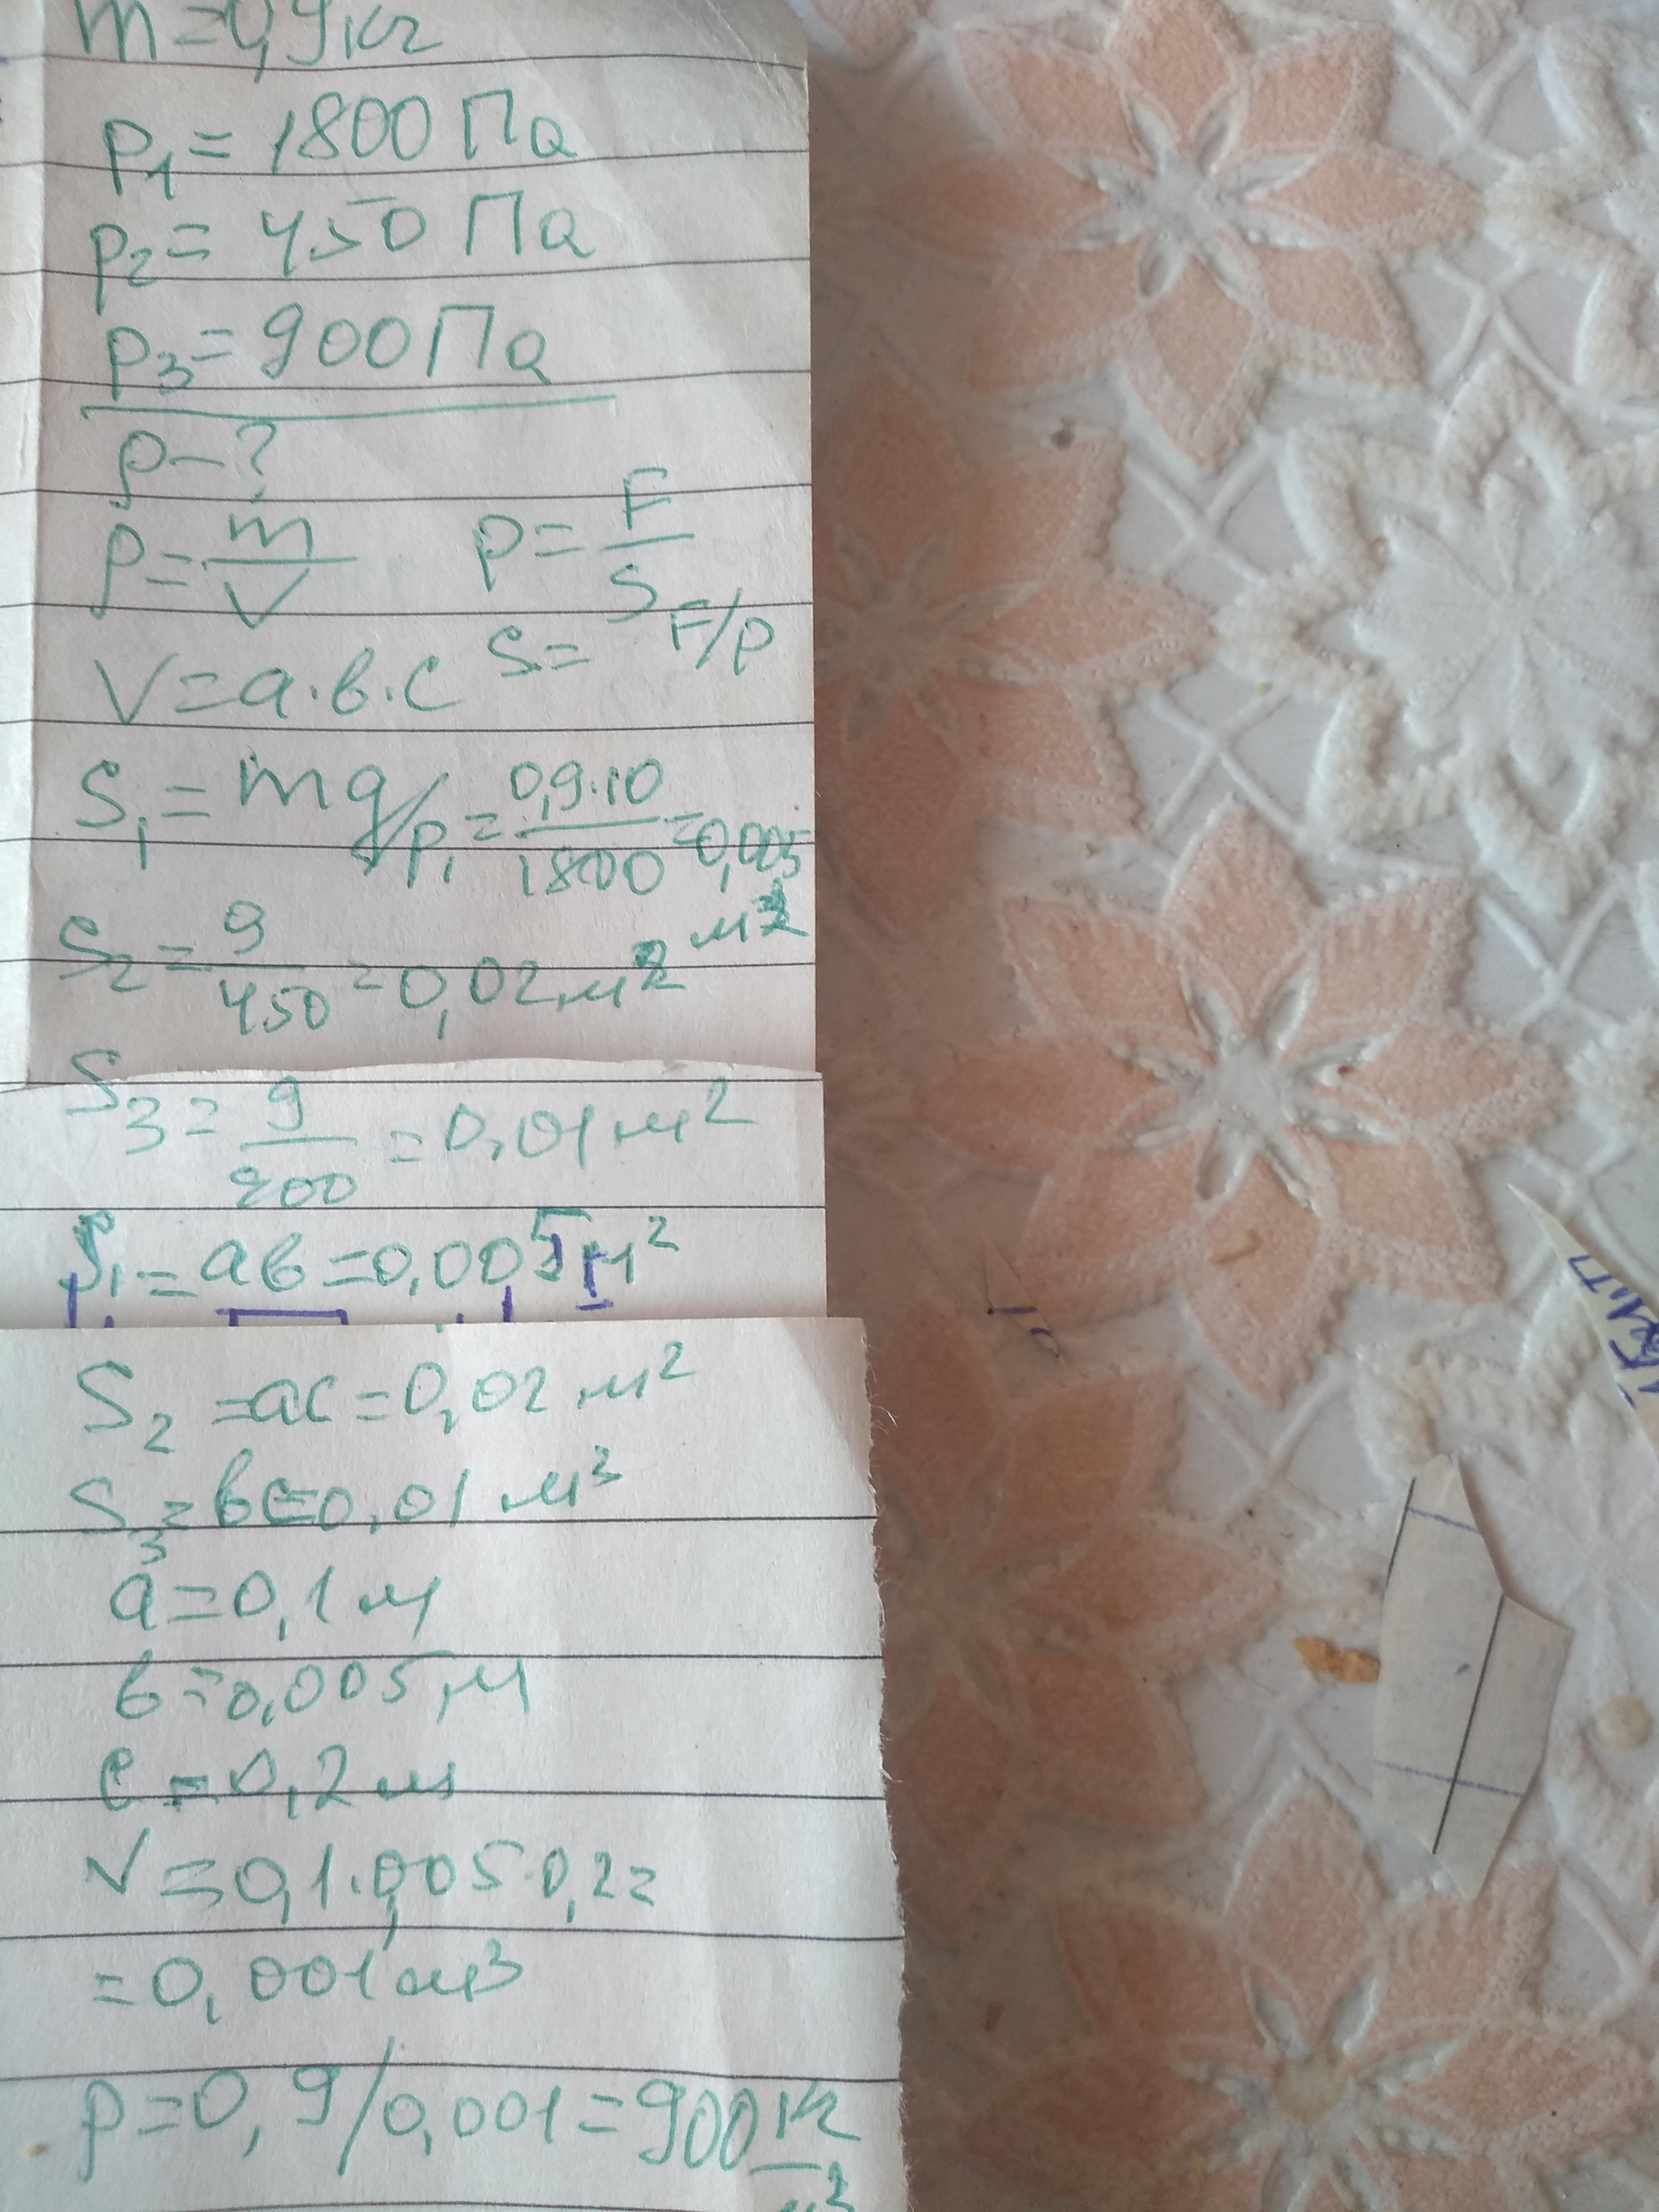 m=0,9кг
p1= 1800 Па
p2= 450 Па
p3= 900 Па
ρ-?
ρ= m/V p= F/S
V=a·в·c S= F/p
S1= mg/p1 = 0,9·10/1800 =0,005 м2
S2 = 9/450 =0,02 м2
S3= 9/900 =0,01 м2
S1= aв =0,005 м2
S2 =ac=0,02 м2
S3= вc=0,01 м2
a=0,1 м
в=0,005 м
c=0,2 м
V=0,1·0,005·0,2=
=0,001 м3
ρ=0,9/0,001=900 кг/м3